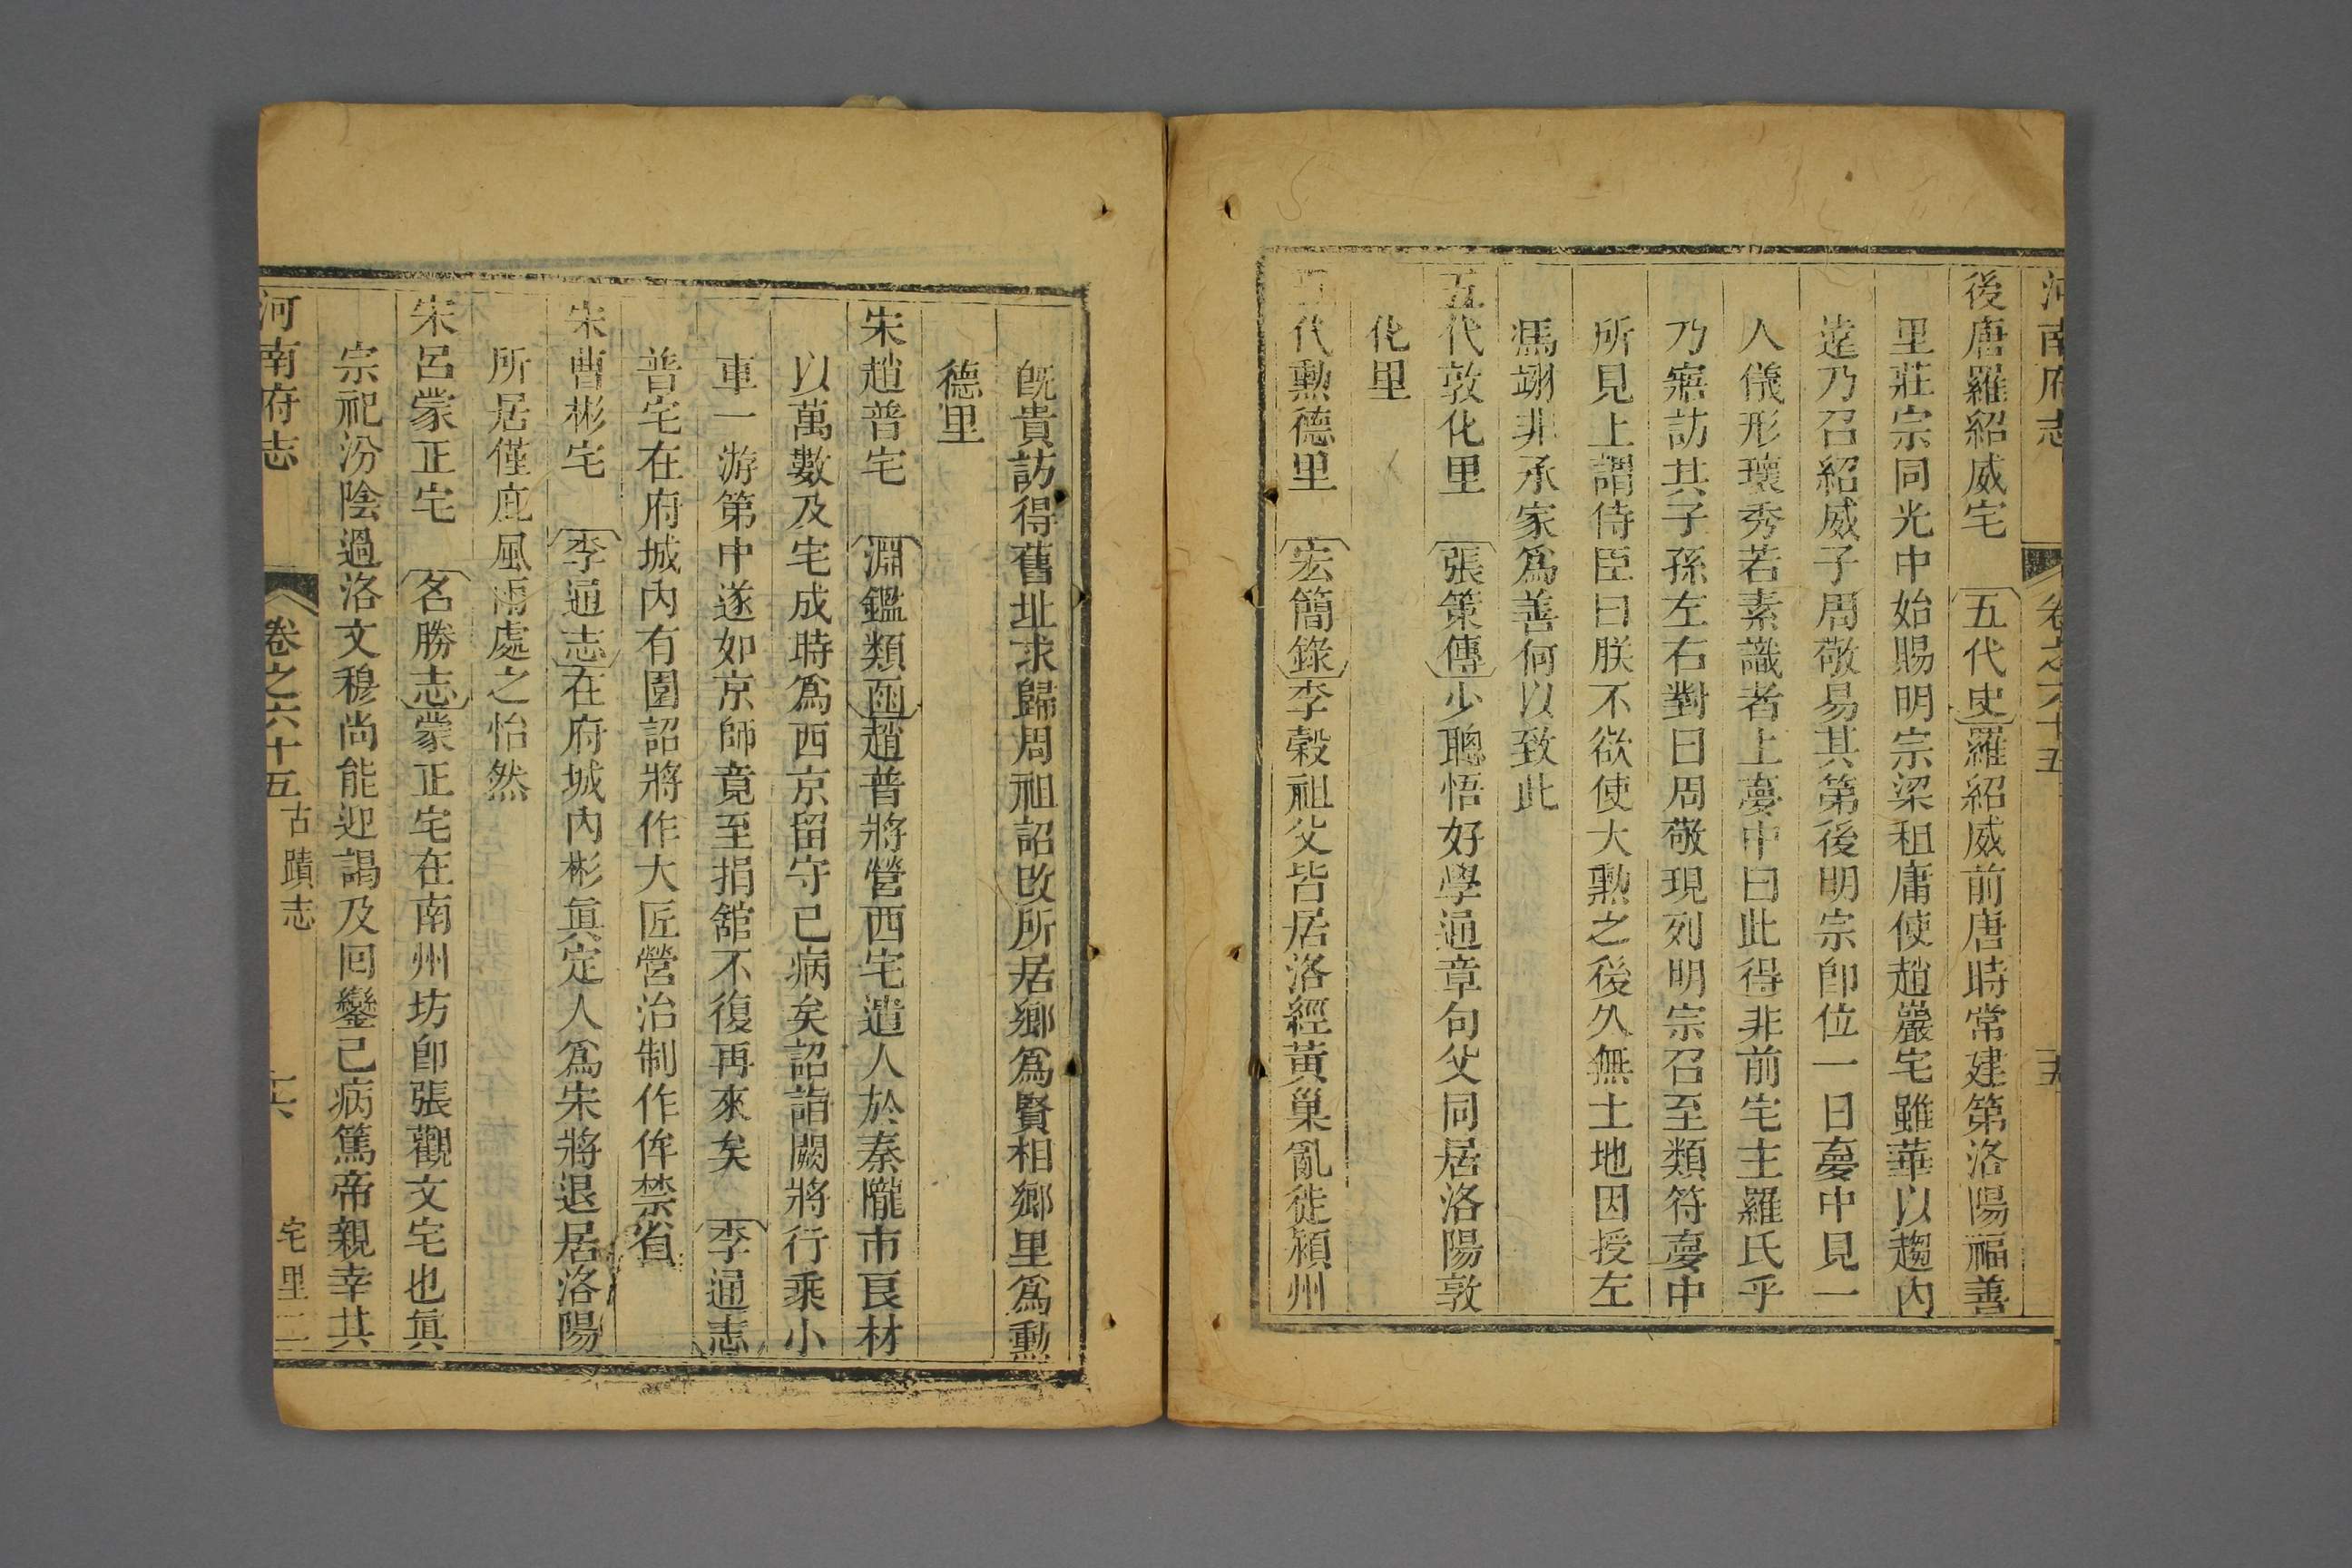 河南府志 卷之六十五
後唐羅紹威宅 五代史羅紹威前唐時常建第洛陽福善
里莊宗同光中始賜明宗梁租庸使趙巖宅雖華以趨內
遠乃召紹威子周敬易其第後明宗卽位一日夢中見一
人儀形瓌秀若素識者上夢中曰此得非前宅主羅氏乎
乃寤訪其子孫左右對曰周敬現列明宗召至類符夢中
所見上謂侍臣曰朕不欲使大勲之後久無土地因授左
馮翊非承家爲善何以致此
五代敦化里 張策傳少聰悟好學通章句父同居洛陽敦
化里
五代勲德里 宏簡錄李榖祖父皆居洛經黃巢亂徙潁州
旣貴訪得舊址求歸周祖詔改所居鄉爲賢相鄉里爲勲
德里
宋趙普宅 淵鑑類函趙普將營西宅遣人於秦隴市良材
以萬數及宅成時爲西京留守已病矣詔詣闕將行乘小
車一游第中遂如京師竟至捐舘不復再來矣 李通志
普宅在府城內有園詔將作大匠營治制作侔禁省
宋曹彬宅 李通志在府城內彬眞定人爲宋將退居洛陽
所居僅庇風雨處之怡然
宋呂蒙正宅 名勝志蒙正宅在南州坊卽張觀文宅也眞
宗祀汾陰過洛文穆尚能迎謁及回鑾已病篤帝親幸其
河南府志 卷之六十五 古蹟志 宅里二